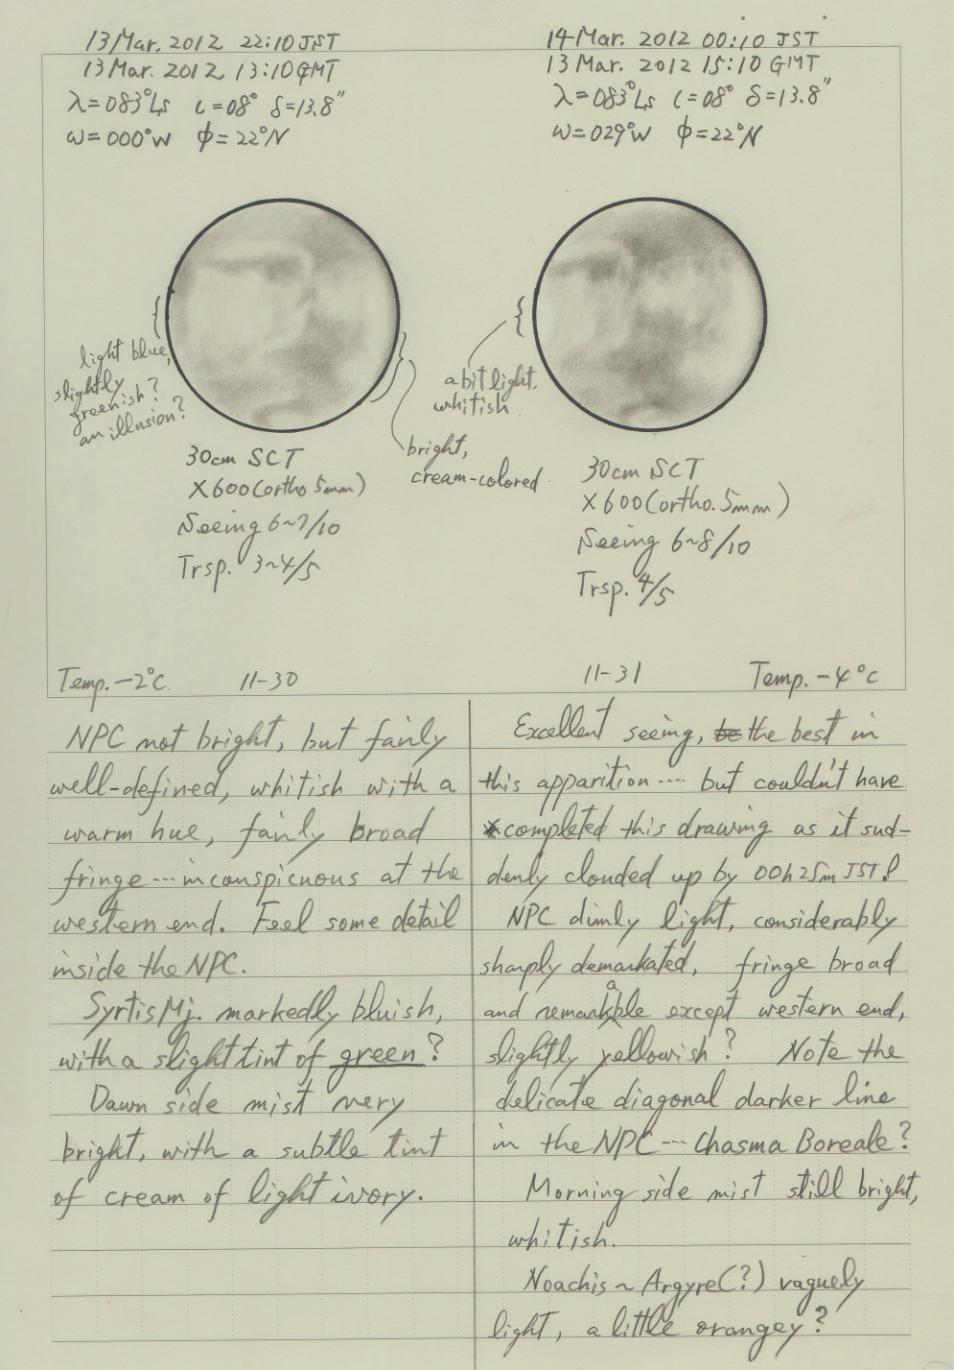 13 Mar. 2012 22:10 JST
13 Mar. 2012 13:10 GMT
λ=083°Ls ι=08° δ=13.8"
ω=000°W φ=22°N
light blue,
slightly
greenish?
an illusion?
bright,
cream-colored
30cm SCT
×600(ortho 5mm)
Seeing 6~7/10
Trsp. 3~4/5
Temp. -2°C 11-30
NPC not bright, but fairly
well-defined, whitish with a
warm hue, fairly broad
fringe---inconspicuous at the
western end. Feel some detail
inside the NPC.
Syrtis Mj. markedly bluish,
with a slight tint of green?
Dawn side mist very
bright, with a subtle tint
of cream of light ivory.
14 Mar. 2012 00:10 JST
13 Mar. 2012 15:10 GMT
λ=083°Ls ι=08° δ=13.8"
ω=029°W φ=22°N
a bit light.
whitish
30cm SCT
×600(ortho. 5mm)
Seeing 6~8/10
Trsp. 4/5
11-31 Temp. -4°C
Excellent seeing, be the best in
this apparition···· but couldn't have
completed this drawing as it sud-
denly clouded up by 00h25m JST!
NPC dimly light, considerably
sharply demarkated, fringe broad
and remarkable except western end,
slightly yellowish? Note the
delicate diagonal darker line
in the NPC---Chasma Boreale?
Morning side mist still bright,
whitish.
Noachis ~ Argyre(?) vaguely
light, a little orangey?